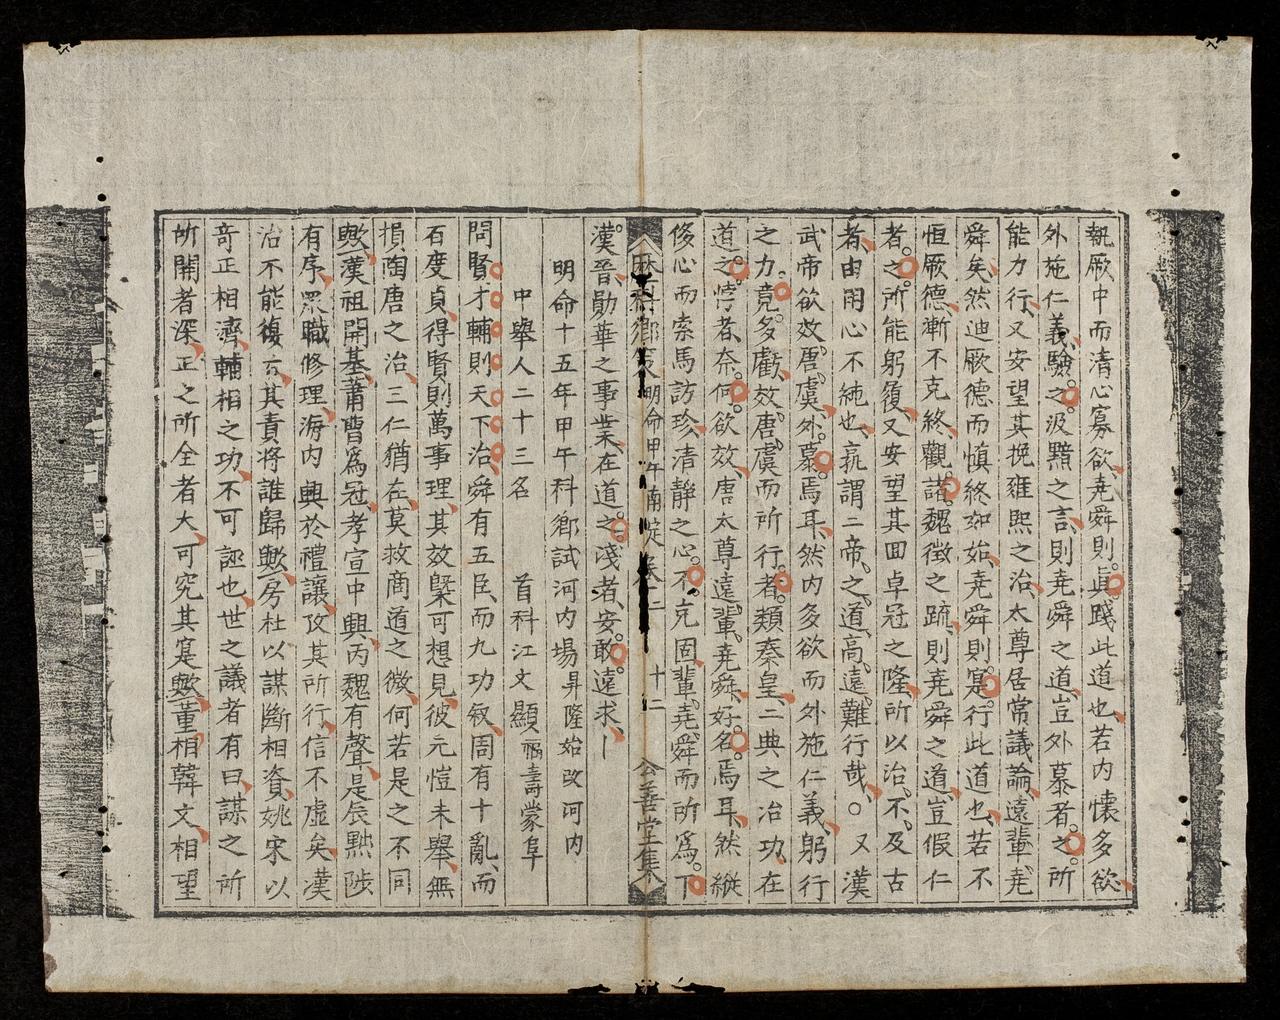 執厥中而清心寡欲堯舜則真踐此道也若内懷多欲
外施仁義驗之汲黯之言則堯舜之道豈外慕者之所
能力行又安望其挽雍熙之治太尊居常議論遠輩堯
舜矣然迪厥德而慎終如始堯舜則是行此道也若不
恒厥德漸不克終觀諸魏徴之疏則堯舜之道豈假仁
者之所能躬履又安望其回卓冠之隆所以治不及古
者由用心不純也孰謂二帝之道高遠難行哉○又漢
武帝欲效唐虞外慕焉耳然内多欲而外施仁義躬行
之力竟多虧效唐虞而所行者類秦皇二典之治功在
道之悖者奈何欲效唐太尊遠輩堯舜好名焉耳然縱
侈心而索馬訪珍清静之心不克固輩堯舜而所爲下
科鄉策明命甲午南定 十二 公善堂集
漢晉勛華之事業在道之淺者安敢遠求
明命十五年甲午科鄉試河内場昇隆始改河内
中舉人二十三名 首科江文顯福壽蒙阜
問賢才輔則天下治舜有五臣而九功叙周有十亂而
百度貞得賢則萬事理其效槩可想見彼元愷未舉無
損陶唐之治三仁猶在莫救商道之微何若是之不同
歟漢祖開基蕭曹爲冠孝宣中興丙魏有聲是辰黜陟
有序眾職修理海内興於禮讓攷其所行信不虛矣漢
治不能復古其責將誰歸歟房杜以謀斷相資姚宋以
竒正相濟輔相之功不可誣也世之議者有曰謀之所
所開者深正之所全者大可究其寔歟董相韓文相望